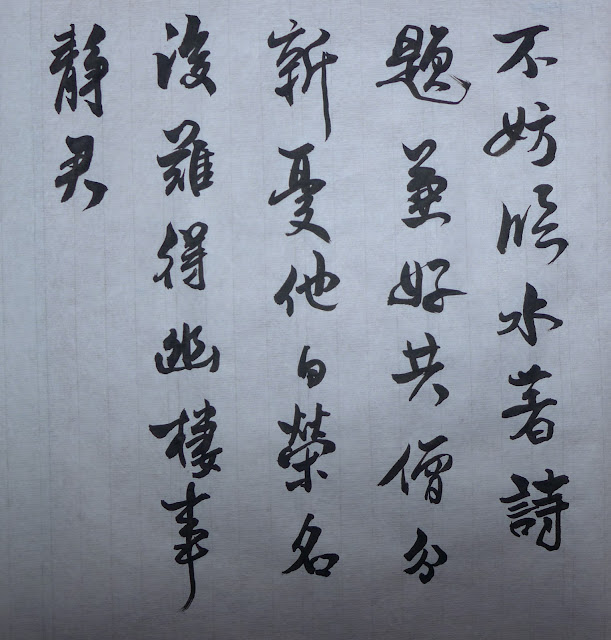 不妨臨水著詩
題兼好共僧分
新憂他日榮名
後難得幽棲事
靜君